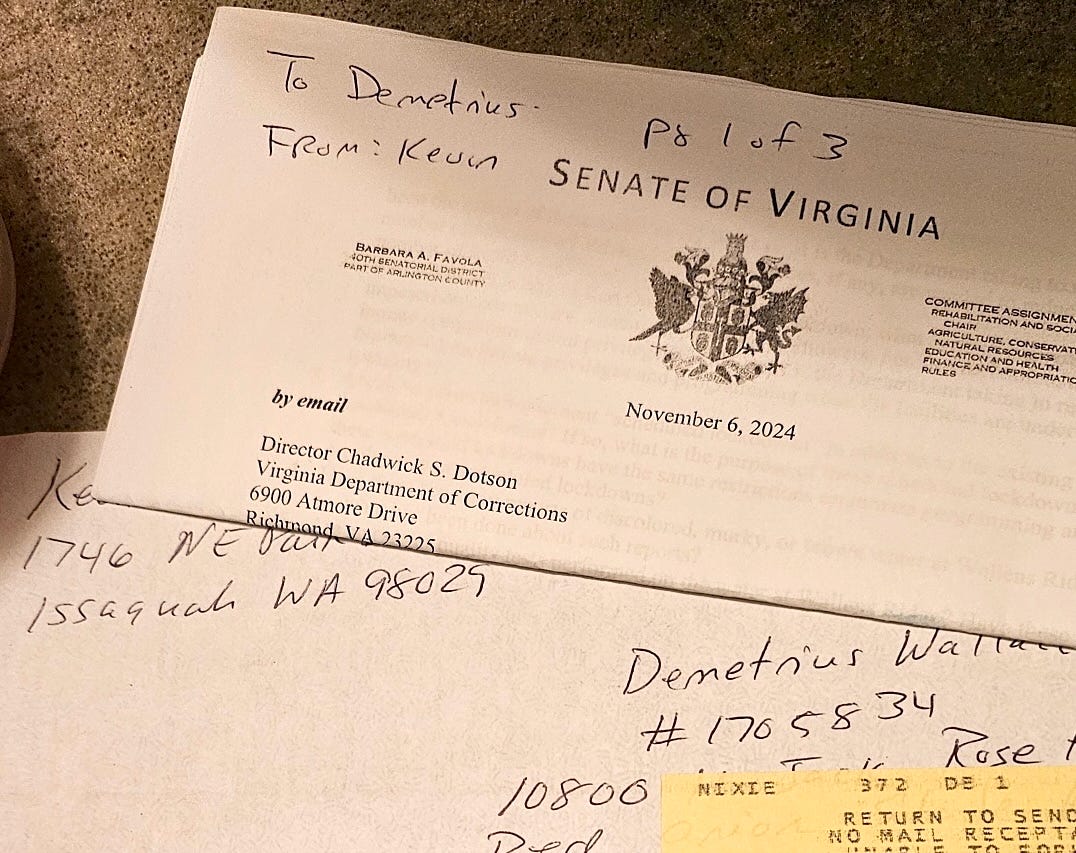 To Demetrius
From: Kevin
pg 1 of 3
SENATE OF VIRGINIA
BARBARA A. FAVOLA
40TH SENATORIAL DISTRICT
PART OF ARLINGTON COUNTY
COMMITTEE ASSIGNMEN
REHABILITATION AND SOCIA
CHAIR
AGRICULTURE, CONSERVAT
NATURAL RESOURCES
EDUCATION AND HEALTH
FINANCE AND APPROPRIATIO
RULES
by email
November 6, 2024
Director Chadwick S. Dotson
Virginia Department of Corrections
6900 Atmore Drive
Richmond, VA 23225
Ke
1746 NE
Issaquah WA 98029
Demetrius Walla
#1705834
Rose
10800
Red
NIXIE 372 DE 1
RETURN TO SEND
NO MAIL RECEPTA
UNABLE TO FORW